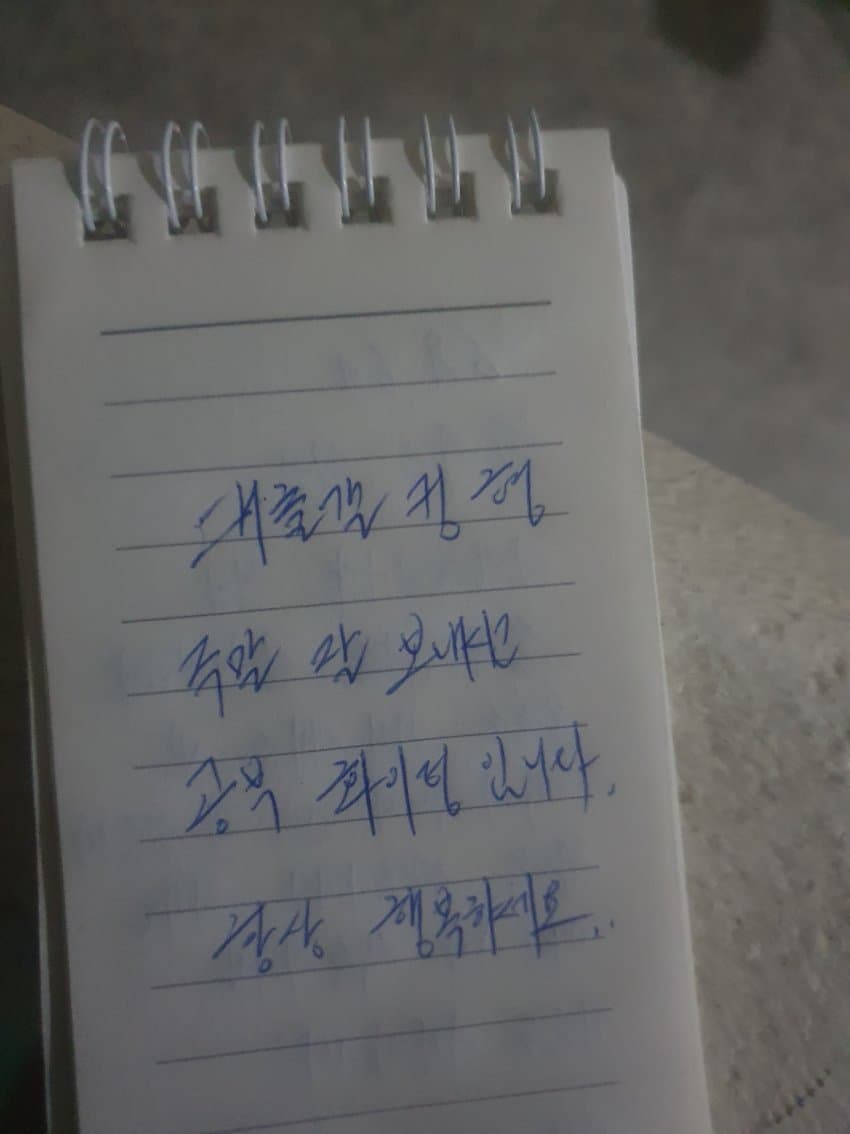 대출갤 킹 형
주말 잘 보내시고
공복 화이팅 입니다.
항상 행복하세요..